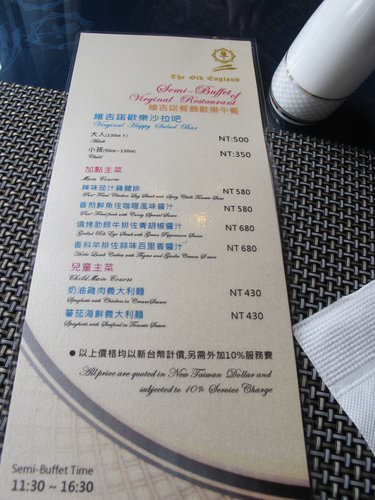 The Old England
Semi-Buffet of
Virginal Restaurant
維吉諾餐廳歡樂午餐
維吉諾歡樂沙拉吧
Virginal Happy Salad Bar
大人(130cm↑) NT:500
Adult
小孩(90cm~130cm) NT:350
Child
加點主菜
Main Course
辣味茄汁雞腿排 NT 580
Pan-Fried Chicken Leg Steak with Spicy Chili Tomato Sauce
香煎鮮魚佐咖哩風味醬汁 NT 580
Pan-Fried Fish with Curry Spiced Sauce
燒烤肋眼牛排佐青胡椒醬汁 NT 680
Grilled Rib Eye Steak with Green Peppercorn Sauce
香料羊排佐蒜味百里香醬汁 NT 680
Herbs Lamb Cutlets with Thyme and Garlic Cream Sauce
兒童主菜
Child Main Course
奶油雞肉義大利麵 NT 430
Spaghetti with Chicken in Cream Sauce
蕃茄海鮮義大利麵 NT 430
Spaghetti with Seafood in Tomato Sauce
●以上價格均以新台幣計價,另需外加10%服務費
All price are quoted in New Taiwan Dollar and
subjected to 10% Service Charge
Semi-Buffet Time
11:30 ~ 16:30